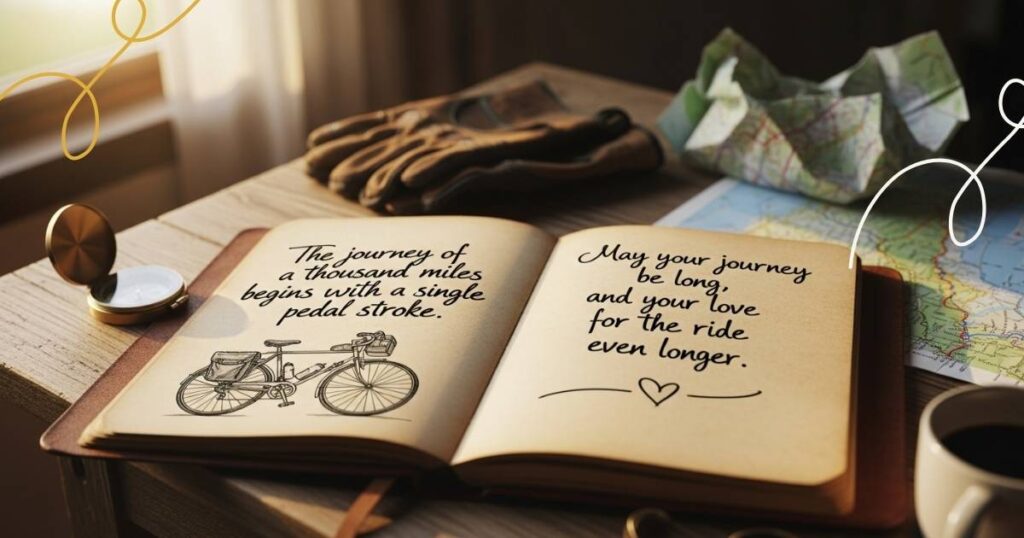 The journey of
a thousand miles
begins with a single
pedal stroke.
May your journey
be long,
and your love
for the ride
even longer.